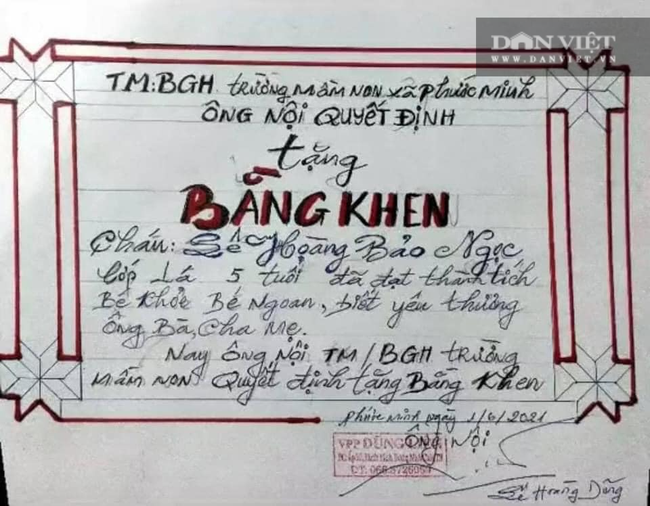 DÂN VIỆT
WWW.DANVIET.VN
TM:BGH trường mầm non xã Phước Minh
ÔNG NỘI QUYẾT ĐỊNH
tặng
BẰNG KHEN
Cháu: Lê Hoàng Bảo Ngọc
Lớp Lá 5 tuổi đã đạt thành tích
Bé Khỏe Bé Ngoan, biết yêu thương
Ông Bà, Cha Mẹ.
Nay ông Nội TM/BGH TRƯỜNG
MẦM NON Quyết định tặng Bằng Khen
Phước Minh ngày 1/6/2021
ÔNG NỘI
VPP DŨNG
Lê Hoàng Dũng